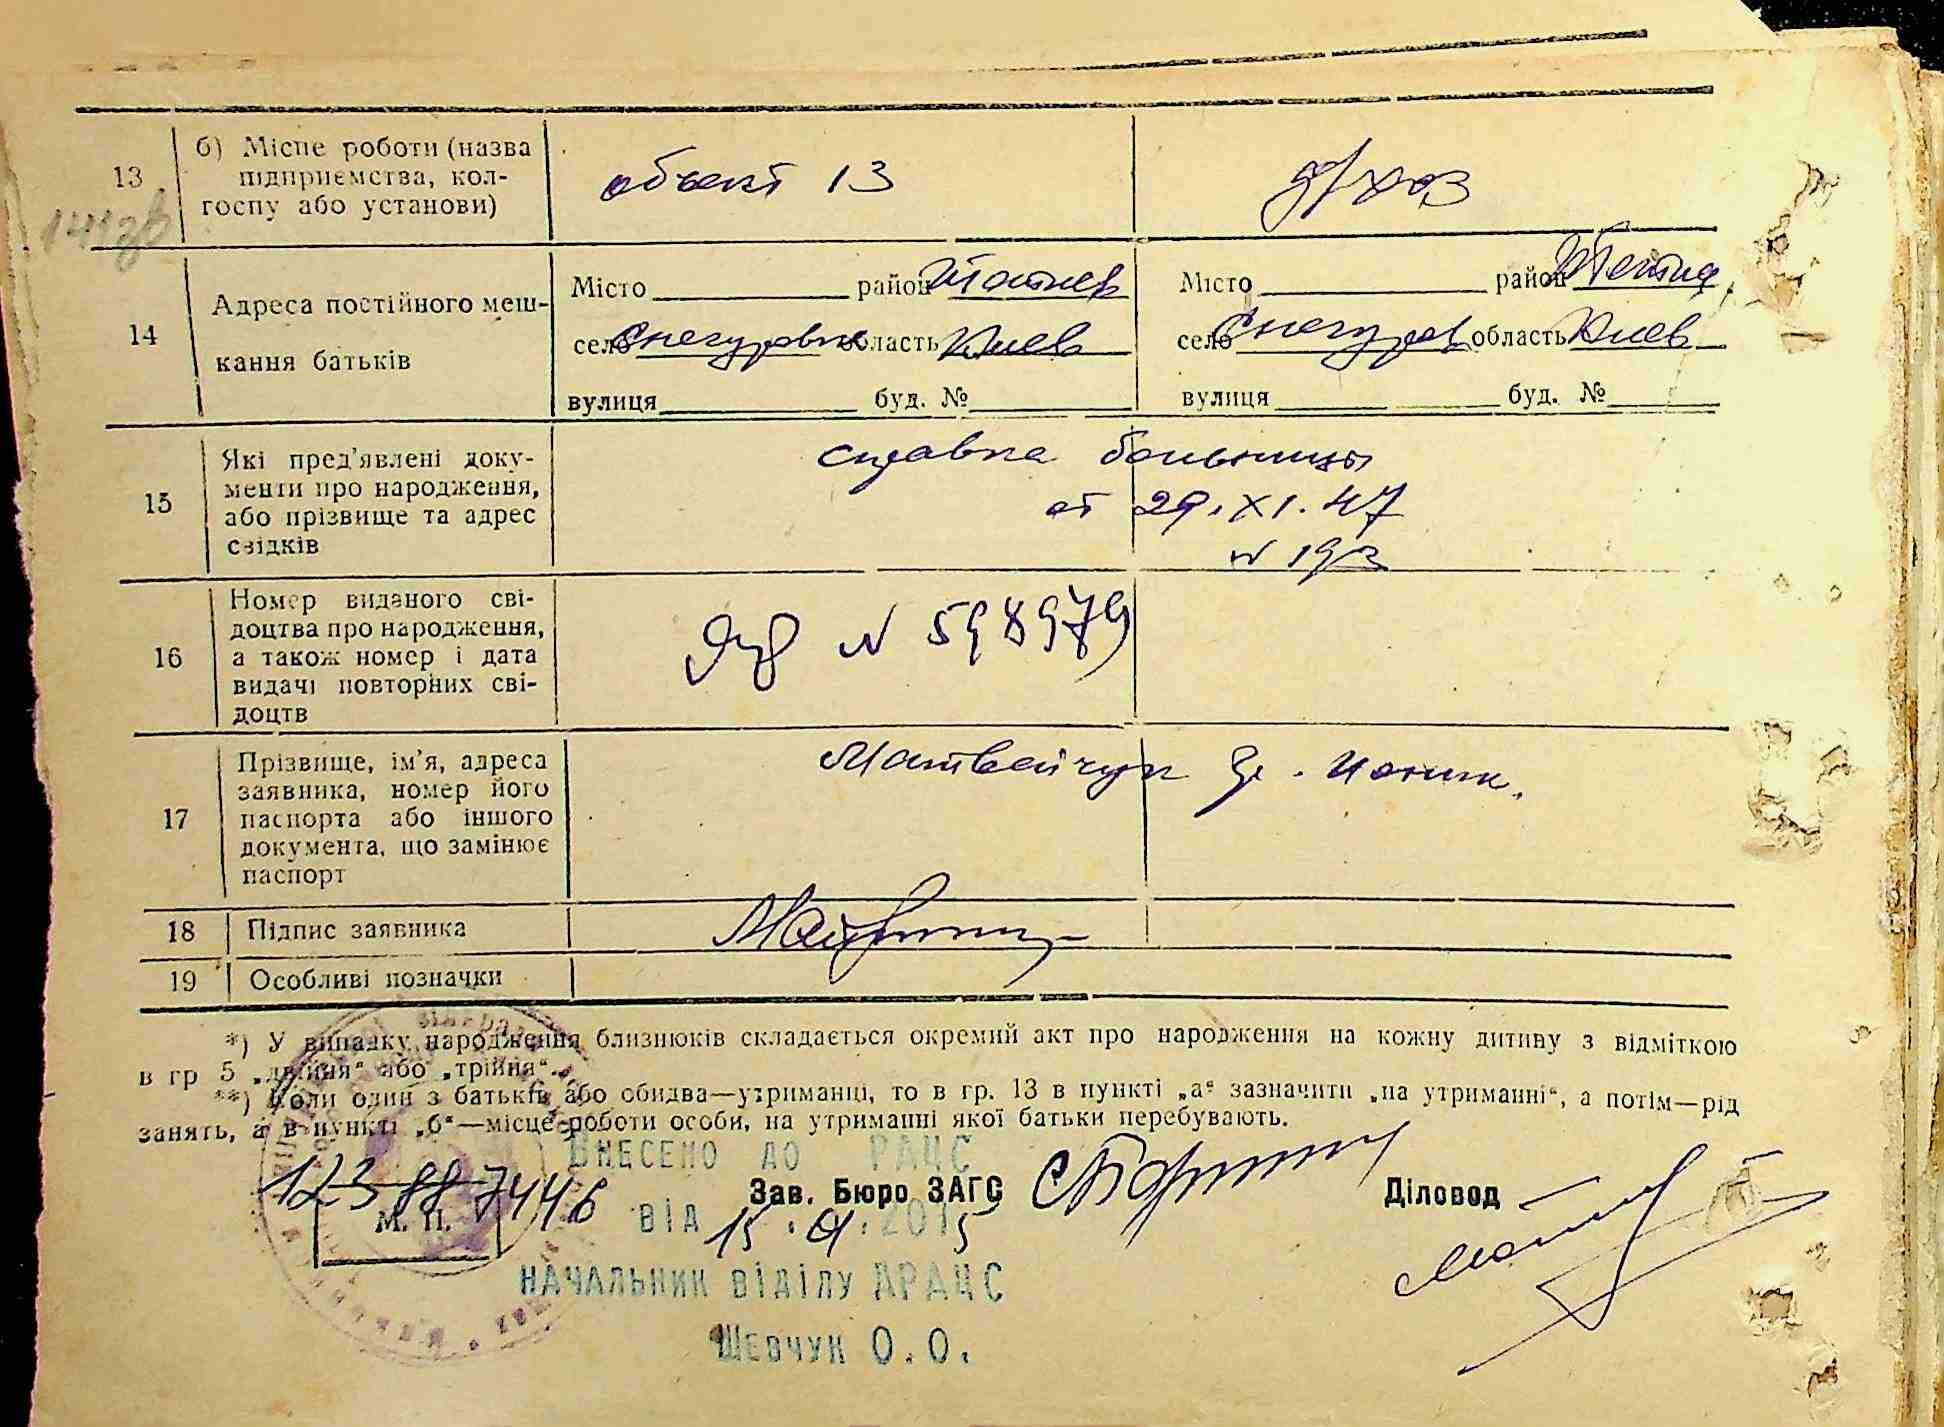 13
б) Місце роботи (назва
підприємства, кол-
госпу або установи)
объект 13
д/хоз
14
Адреса постійного меш-
кання батьків
Місто район
село Снегуровка область Киев
вулиця буд. №
Місто район
село Снегуров область Киев
вулиця буд. №
15
Які пред'явлені доку-
менти про народження,
або прізвище та адрес
свідків
справка больницы
от 29. XI. 47
N 193
16
Номер виданого сві-
доцтва про народження,
а також номер і дата
видачі повторних сві-
доцтв
N 598979
17
Прізвище, ім'я, адреса
заявника, номер його
паспорта або іншого
документа, що замінює
паспорт
Матвейчук
18
Підпис заявника
19
Особливі позначки
*) У випадку народження близнюків складається окремий акт про народження на кожну дитину з відміткою
в гр 5 „двійня“ або „трійня“.
**) Коли один з батьків або обидва—утриманці, то в гр. 13 в пункті „а“ зазначити „на утриманні“, а потім—рід
занять, а в пункті „б“—місце роботи особи, на утриманні якої батьки перебувають.
ВНЕСЕНО ДО РАЦС
123 88 7446
М. П.
Зав. Бюро ЗАГС
Діловод
ВІД 15. .2015
НАЧАЛЬНИК ВІДІЛУ ДРАЦС
ШЕВЧУК О.О.